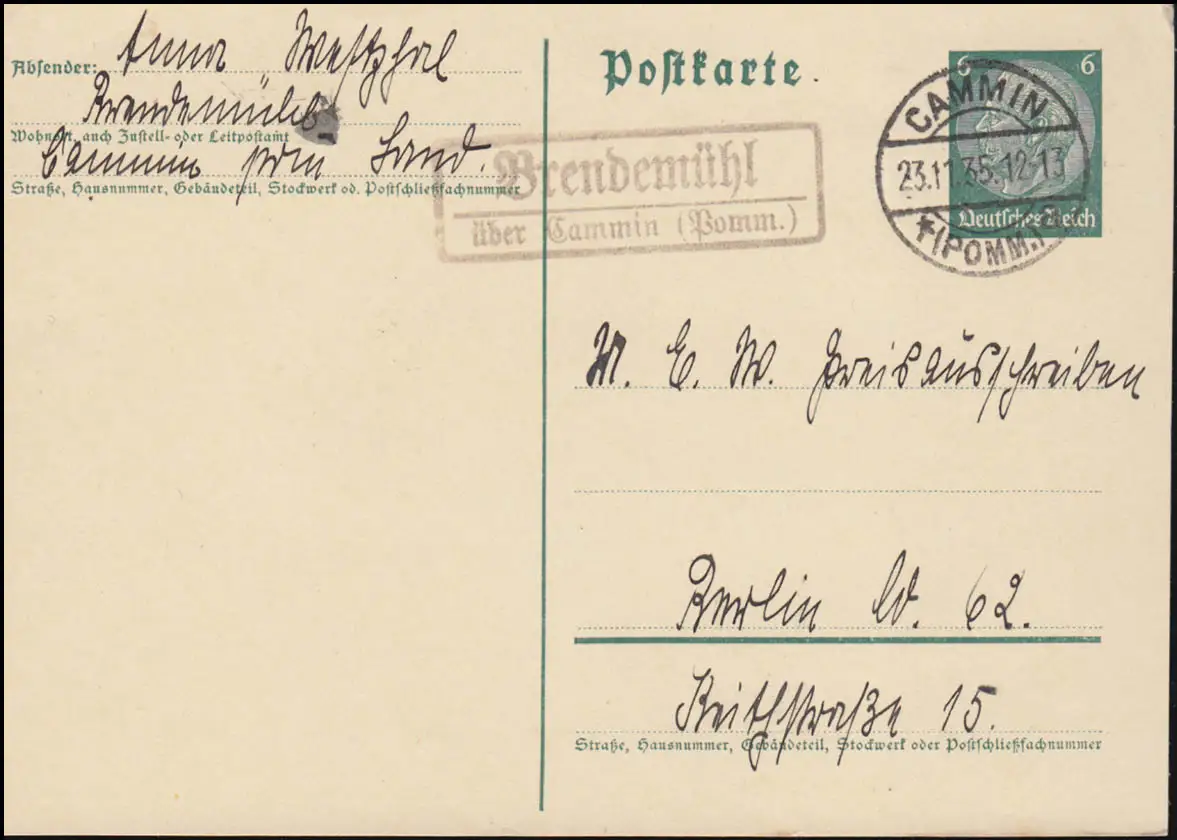 Absender: Anna Westphal
Brendemühl
Wohnort, auch Zustell- oder Leitpostamt
Cammin pom Land.
Straße, Hausnummer, Gebäudeteil, Stockwerk od. Postschließfachnummer
Postkarte
Brendemühl
über Cammin (Pomm.)
6 6
Deutsches Reich
CAMMIN
23.11.35.12-13
*(POMM.)
M. E. W. Preisausschreiben
Berlin W. 62.
Keithstraße 15.
Straße, Hausnummer, Gebäudeteil, Stockwerk oder Postschließfachnummer